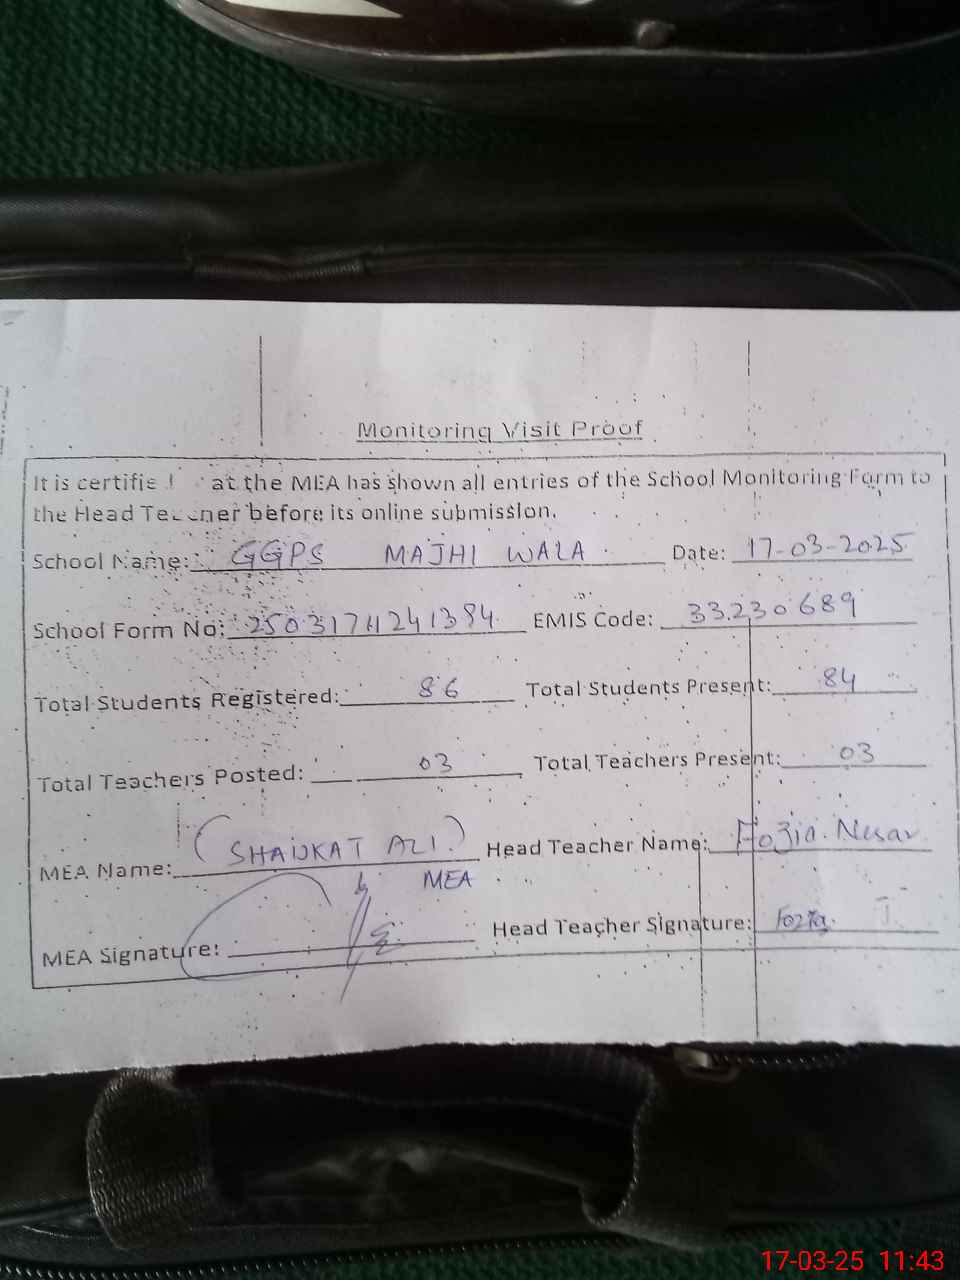 Monitoring Visit Proof
It is certifie at the MEA has shown all entries of the School Monitoring Form to
the Head Teacher before its online submission.
School Name: GGPS MAJHI WALA Date: 17-03-2025
School Form No: EMIS Code: 33230689
Total Students Registered: 86 Total Students Present: 84
Total Teachers Posted: 03 Total Teachers Present: 03
MEA Name: (SHAUKAT ALI) Head Teacher Name: Fozia Nusar
MEA
MEA Signature: Head Teacher Signature: Fozia
17-03-25 11:43